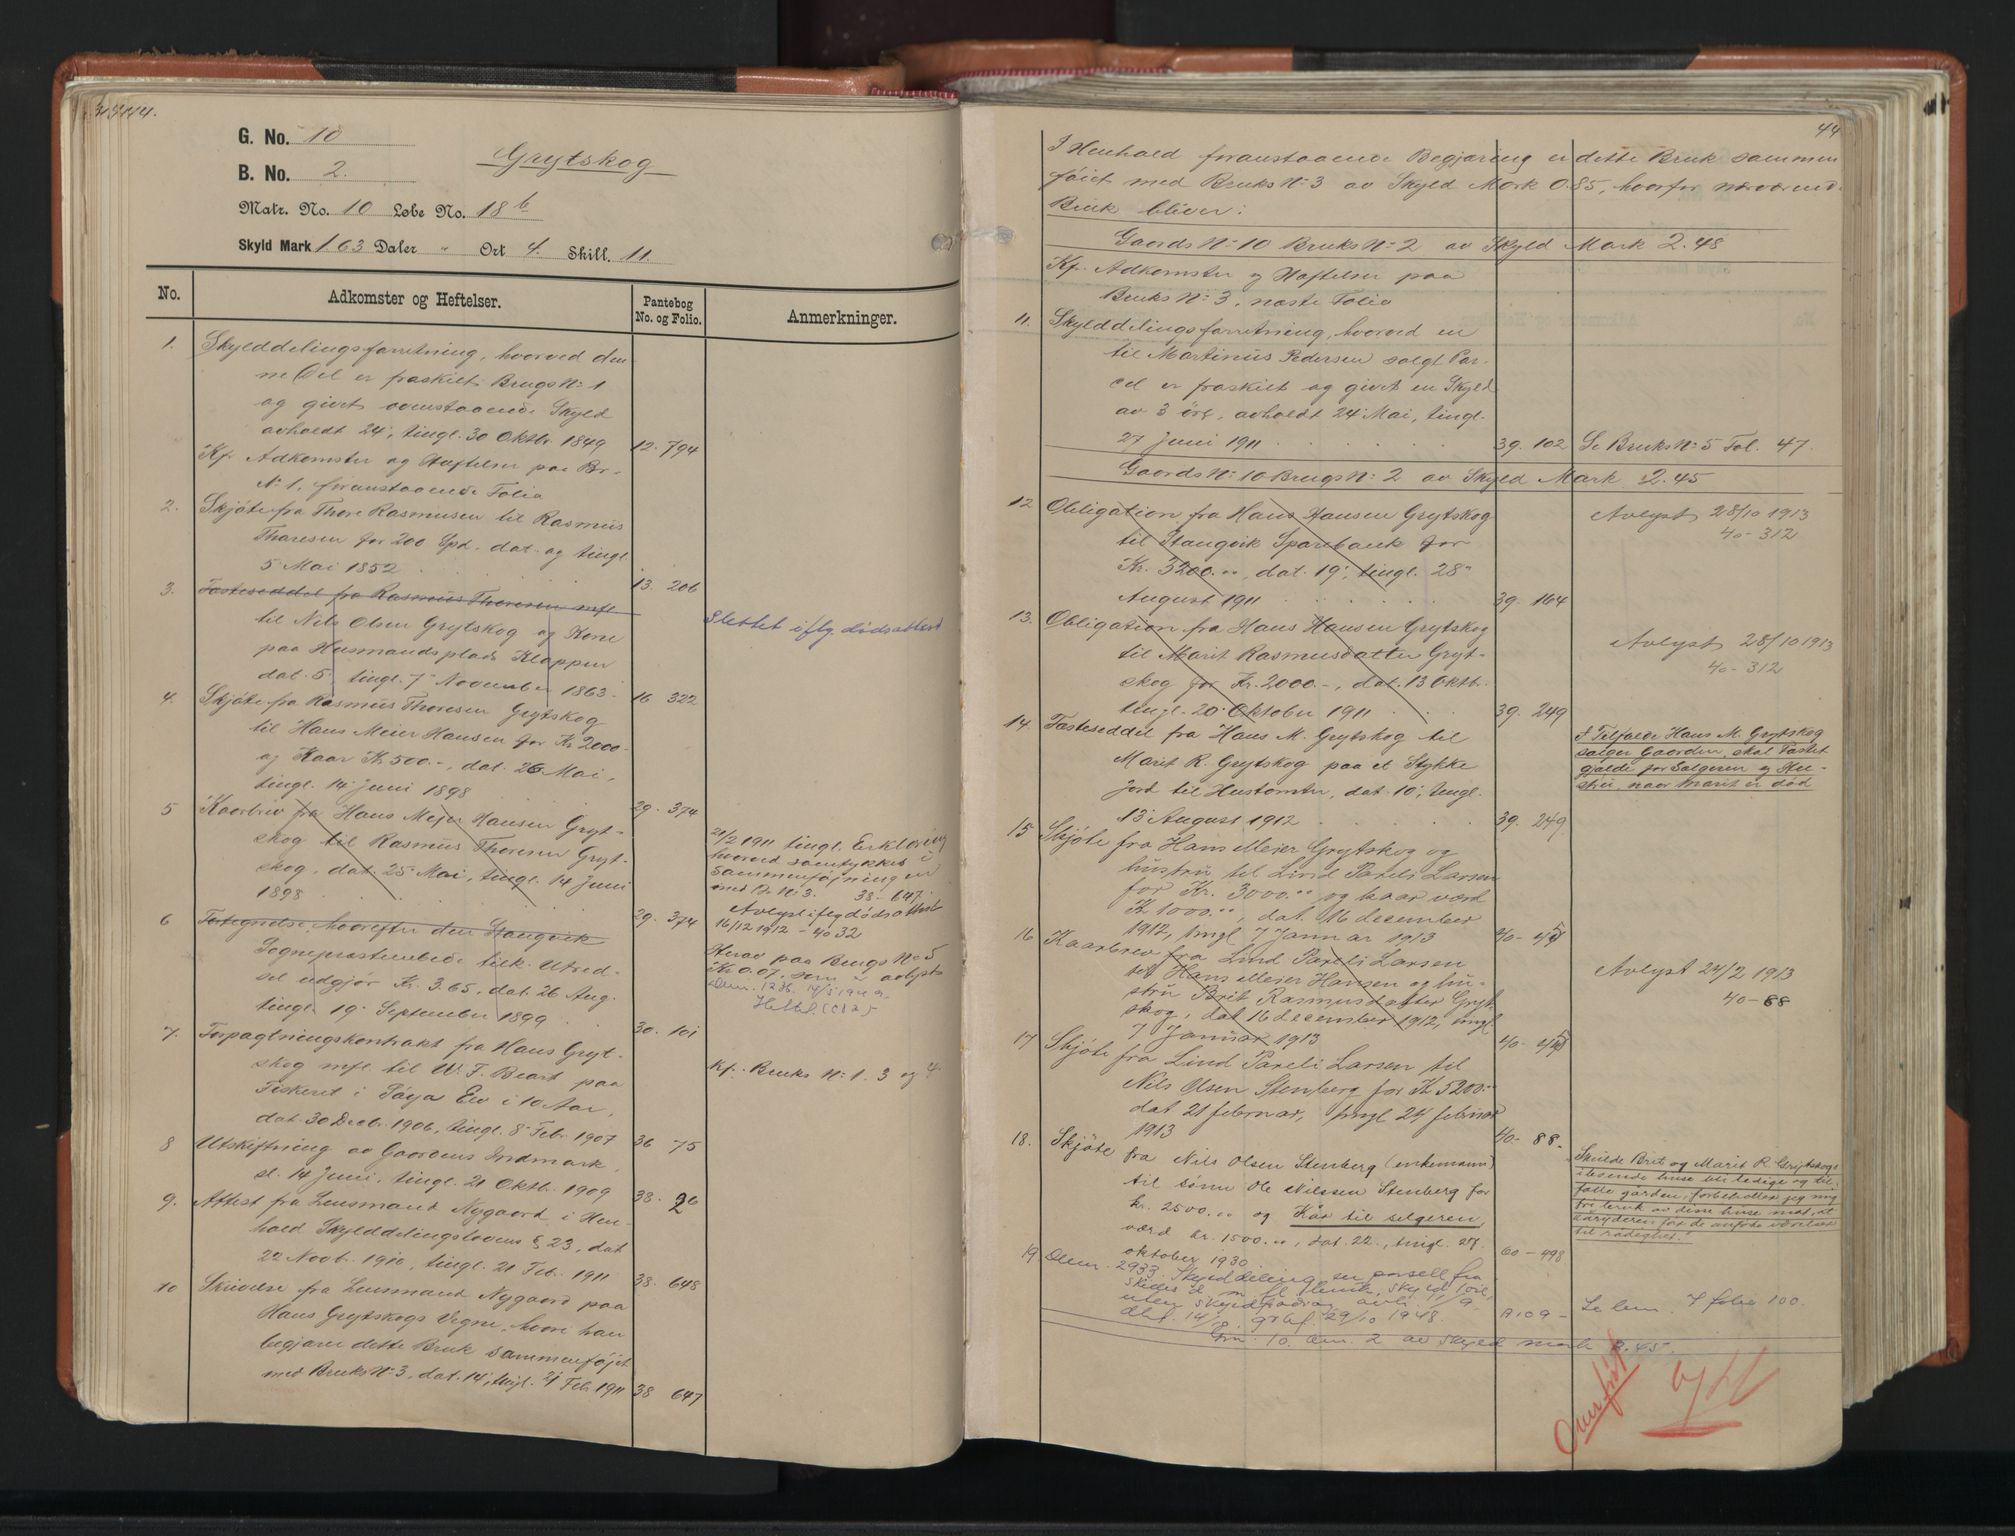 G. No. 10
B. No. 2.
Grytskog
Matr. No. 10 Løbe No. 18 b
Skyld Mark 1.63 Daler " Ort 4. Skill. 11.
No.
Adkomster og Heftelser.
Pantebog
No. og Folio.
Anmerkninger.
1. Skylddelingsforretning, hvorved den-
ne Del er fraskilt Brugs No 1
og givet ovenstaaende Skyld
avholdt 24, tingl. 30 Oktbr. 1849 12. 794
Kfr. Adkomster og Heftelser paa Br.
No 1, foranstaaende Folio
2. Skjøte fra Thore Rasmussen til Rasmus
Thoresen for 200 Spd. dat. og tingl.
5 Mai 1852 13. 206
3. Fæsteseddel fra Rasmus Thoresen mfl
til Nils Olsen Grytskog og Kone
paa Husmandsplads Kloppen
dat. 5, tingl. 7 November 1863 16 322
Slettet iflg. dødsattest
4. Skjøte fra Rasmus Thoresen Grytskog
til Hans Meier Hansen for Kr 2000.-
og Kaar Kr. 500.-, dat. 26 Mai,
tingl. 14 Juni 1898 29. 374
5 Kaarbrev fra Hans Mejer Hansen Gryt-
skog til Rasmus Thoresen Gryt-
skog, dat. 25 Mai, tingl. 14 Juni
1898 29. 374
21/2 1911 tingl. Erklæring
hvorved samtykkes i
sammenføjningen
med Br. No. 3. 38-647.
Avlyst iflg dødsattest
16/12 1912 - 40 32
6 Fortegnelse hvorefter den Stangvik
Sogneprestembede tilk. Utred-
sel udgjør Kr. 3.65, dat. 26 Aug.
tingl. 19 September 1899 30. 101
Herav paa Brugs No 5
Kr 0.07, som avlyst
7. Forpagtningskontrakt fra Hans Gryt-
skog mfl. til W. F. Beart paa
Fiskeret i Søya Elv i 10 Aar,
dat. 30 Decbr. 1906, tingl. 8 Febr. 1907 36 75
Kfr. Bruks No 1. 3 og 4.
8 Utskiftning av Gaardens Indmark,
sl. 14 Juni, tingl. 21 Oktbr. 1909 38. 26
9. Attest fra Lensmand Nygaard i Hen-
hold Skylddelingslovens § 23, dat.
22 Novb. 1910, tingl. 21 Feb. 1911 38. 648
10 Skrivelse fra Lensmand Nygaard paa
Hans Grytskogs Vegne, hvori han
begjærer dette Bruk sammenføjet
med Bruks No 3, dat. 14, tingl. 21 Feb. 1911 38 647
44
I Henhold foranstaaende Begjæring er dette Bruk sammen
føiet med Bruks No 3 av Skyld Mark 0.85, hvorfor nærværend.
Bruk bliver:
Gaards No 10 Bruks No 2 av Skyld Mark 2.48
Kfr. Adkomster og Heftelser paa
Bruks No 3, næste Folio
11. Skylddelingsforretning, hvorved en
til Martinus Pedersen solgt Par-
cel er fraskilt og givet en Skyld
av 3 öre, avholdt 24 Mai, tingl.
27 Juni 1911 39. 102 Se Bruks No 5 Fol. 47.
Gaards No 10 Brugs No 2 av Skyld Mark 2.45
12 Obligation fra Hans Hansen Grytskog
til Stangvik Sparebank for
Kr. 3200.00, dat. 19, tingl. 28
August 1911 39. 164
Avlyst 28/10 1913
40-312
13. Obligation fra Hans Hansen Grytskog
til Marit Rasmusdatter Gryt-
skog for Kr. 2000.-, dat. 13 Oktbr.
tingl. 20 Oktober 1911 39. 249
Avlyst 28/10 1913
40-312
14. Fæsteseddel fra Hans M. Grytskog til
Marit R. Grytskog paa et Stykke
Jord til Hustomter, dat. 10, tingl.
13 August 1912 39. 249
I Tilfælde Hans M. Grytskog
sælger Gaarden, skal Fæstet
gjælde for Sælgeren og Hu-
stru, naar Marit er død
15 Skjøte fra Hans Meier Grytskog og
hustru til Lind Pareli Larsen
for Kr. 3000.00 og kaar værd
Kr 1000.00, dat. 16 december
1912, tingl 7 Januar 1913
16 Kaarbrev fra Lind Pareli Larsen
til Hans Meier Hansen og hu-
stru Brit Rasmusdatter Gryt-
skog, dat 16 december 1912, tingl.
7 Januar 1913
Avlyst 24/2 1913
40-88
17 Skjøte fra Lind Pareli Larsen til
Nils Olsen Stenberg for Kr 5200.-
dat 21 februar, tingl 24 februar
1913 40-88-
18. Skjøte fra Nils Olsen Stenberg (enkemann)
til sønn Ole Nilssen Stenberg for
kr. 2500.00 og Kår til selgeren,
værd kr. 1500.00, dat. 22., tingl. 27.
oktober 1930 60-498
Skulde Brit og Marit R. Grytskogs
iboende huse bli ledige og til-
falle garden, forbeholder jeg mig
fri bruk av disse huse mot, at
til rådighet.
19 Dnr. 2933. Skylddeling
29/10 1948. A109- 7 folio 100.
Gnr. 10 bnr. 2 av skyld mark 2.45.
Overført